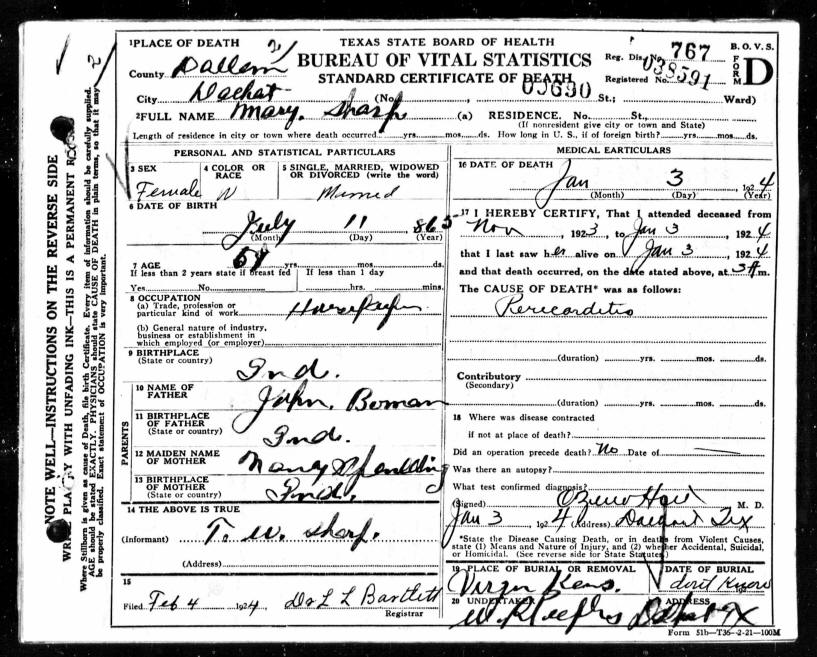 1 PLACE OF DEATH
TEXAS STATE BOARD OF HEALTH
BUREAU OF VITAL STATISTICS
STANDARD CERTIFICATE OF DEATH
Reg. Dis. No. 767
B. O. V. S.
FORM D
Registered No. 038591
03690
County Dallam 2
City Dalhart (No. , St.; Ward)
2 FULL NAME Mary. Sharp (a) RESIDENCE. No. St.,
(If nonresident give city or town and State)
Length of residence in city or town where death occurred yrs. mos. ds. How long in U. S., if of foreign birth? yrs. mos. ds.
PERSONAL AND STATISTICAL PARTICULARS
3 SEX
Female
4 COLOR OR RACE
W
5 SINGLE, MARRIED, WIDOWED OR DIVORCED (write the word)
Married
6 DATE OF BIRTH
July 11 865
(Month) (Day) (Year)
7 AGE
yrs. mos. ds.
If less than 2 years state if breast fed
If less than 1 day
Yes No
hrs. mins.
8 OCCUPATION
(a) Trade, profession or particular kind of work
(b) General nature of industry, business or establishment in which employed (or employer)
9 BIRTHPLACE
(State or country)
Ind.
PARENTS
10 NAME OF FATHER
John. Boman
11 BIRTHPLACE OF FATHER
(State or country)
Ind.
12 MAIDEN NAME OF MOTHER
Nancy Spaulding
13 BIRTHPLACE OF MOTHER
(State or country)
Ind.
14 THE ABOVE IS TRUE
(Informant) T. W. Sharp.
(Address)
15
Filed Feb 4 1924 Dr L L Bartlett
Registrar
MEDICAL PARTICULARS
16 DATE OF DEATH
Jan 3 1924
(Month) (Day) (Year)
17 I HEREBY CERTIFY, That I attended deceased from
Nov , 1923, to Jan 3 , 1924
that I last saw her alive on Jan 3 , 1924
and that death occurred, on the date stated above, at 3 m.
The CAUSE OF DEATH* was as follows:
Pericarditis
(duration) yrs. mos. ds.
Contributory
(Secondary)
(duration) yrs. mos. ds.
18 Where was disease contracted
if not at place of death?
Did an operation precede death? No Date of
Was there an autopsy?
What test confirmed diagnosis?
(Signed) M. D.
Jan 3 1924 (Address) Dalhart Tex
*State the Disease Causing Death, or in deaths from Violent Causes,
state (1) Means and Nature of Injury, and (2) whether Accidental, Suicidal,
or Homicidal. (See reverse side for State Statutes.)
19 PLACE OF BURIAL OR REMOVAL
DATE OF BURIAL
20 UNDERTAKER
ADDRESS
Dalhart TX
Form 51b—T36—2-21—100M
NOTE WELL—INSTRUCTIONS ON THE REVERSE SIDE
WRITE PLAINLY WITH UNFADING INK—THIS IS A PERMANENT RECORD
Where Stillborn is given as cause of Death, file birth Certificate. Every item of information should be carefully supplied.
AGE should be stated EXACTLY. PHYSICIANS should state CAUSE OF DEATH in plain terms, so that it may
be properly classified. Exact statement of OCCUPATION is very important.